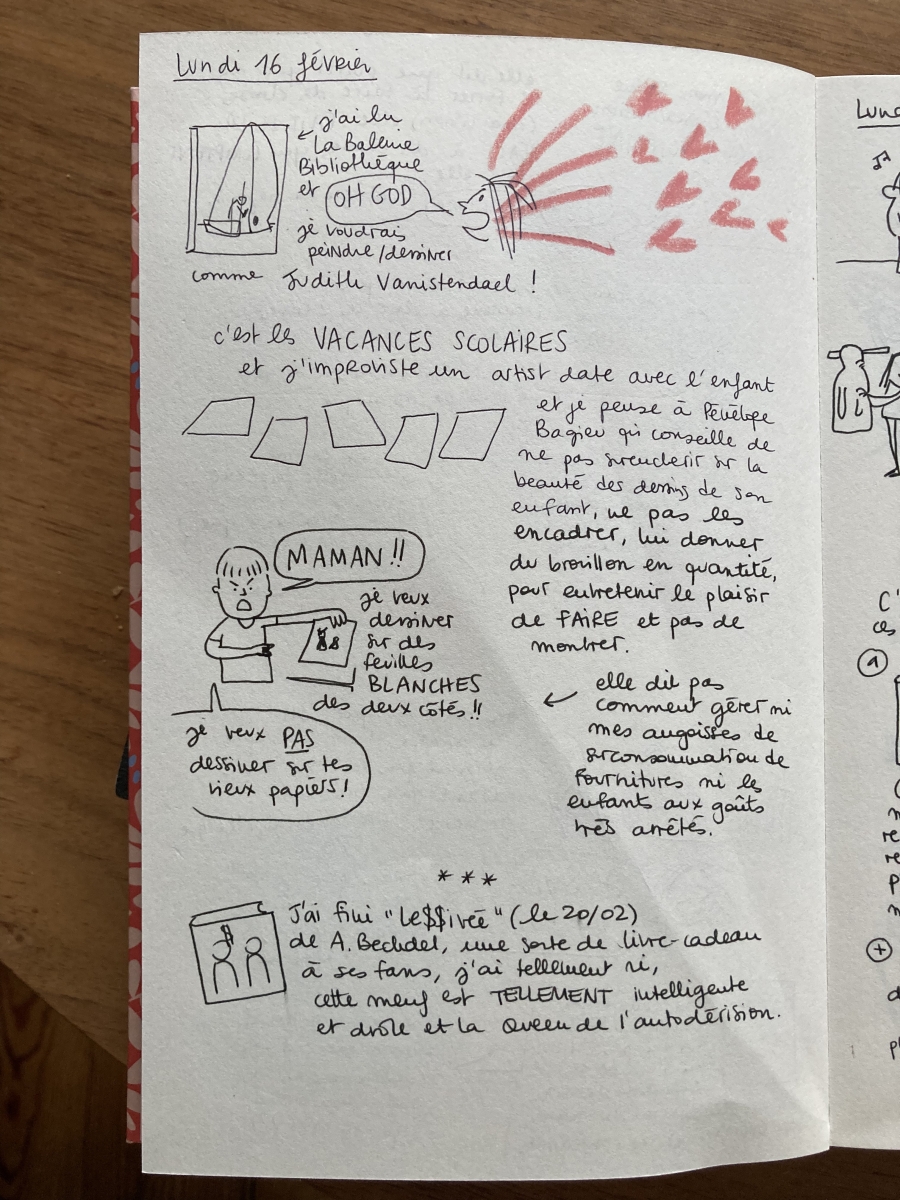 Lundi 16 février
← j'ai lu
La Baleine
Bibliothèque
et
OH GOD
je voudrais
peindre/dessiner
comme Judith Vanistendael !
c'est les VACANCES SCOLAIRES
et j'improviste un artist date avec l'enfant
et je pense à Pénélope
Bagieu qui conseille de
ne pas surenchérir sur la
beauté des dessins de son
enfant, ne pas les
encadrer, lui donner
du brouillon en quantité,
pour entretenir le plaisir
de FAIRE et pas de
montrer.
MAMAN !!
je veux
dessiner
sur des
feuilles
BLANCHES
des deux côtés !!
je veux PAS
dessiner sur tes
vieux papiers !
← elle dit pas
comment gérer ni
mes angoisses de
surconsommation de
fournitures ni les
enfants aux goûts
très arrêtés.
***
J'ai fini "Le$$ivée" (le 20/02)
de A. Bechdel, une sorte de livre-cadeau
à ses fans, j'ai tellement ri,
cette meuf est TELLEMENT intelligente
et drôle et la Queen de l'autodérision.
C'
ces
1
+